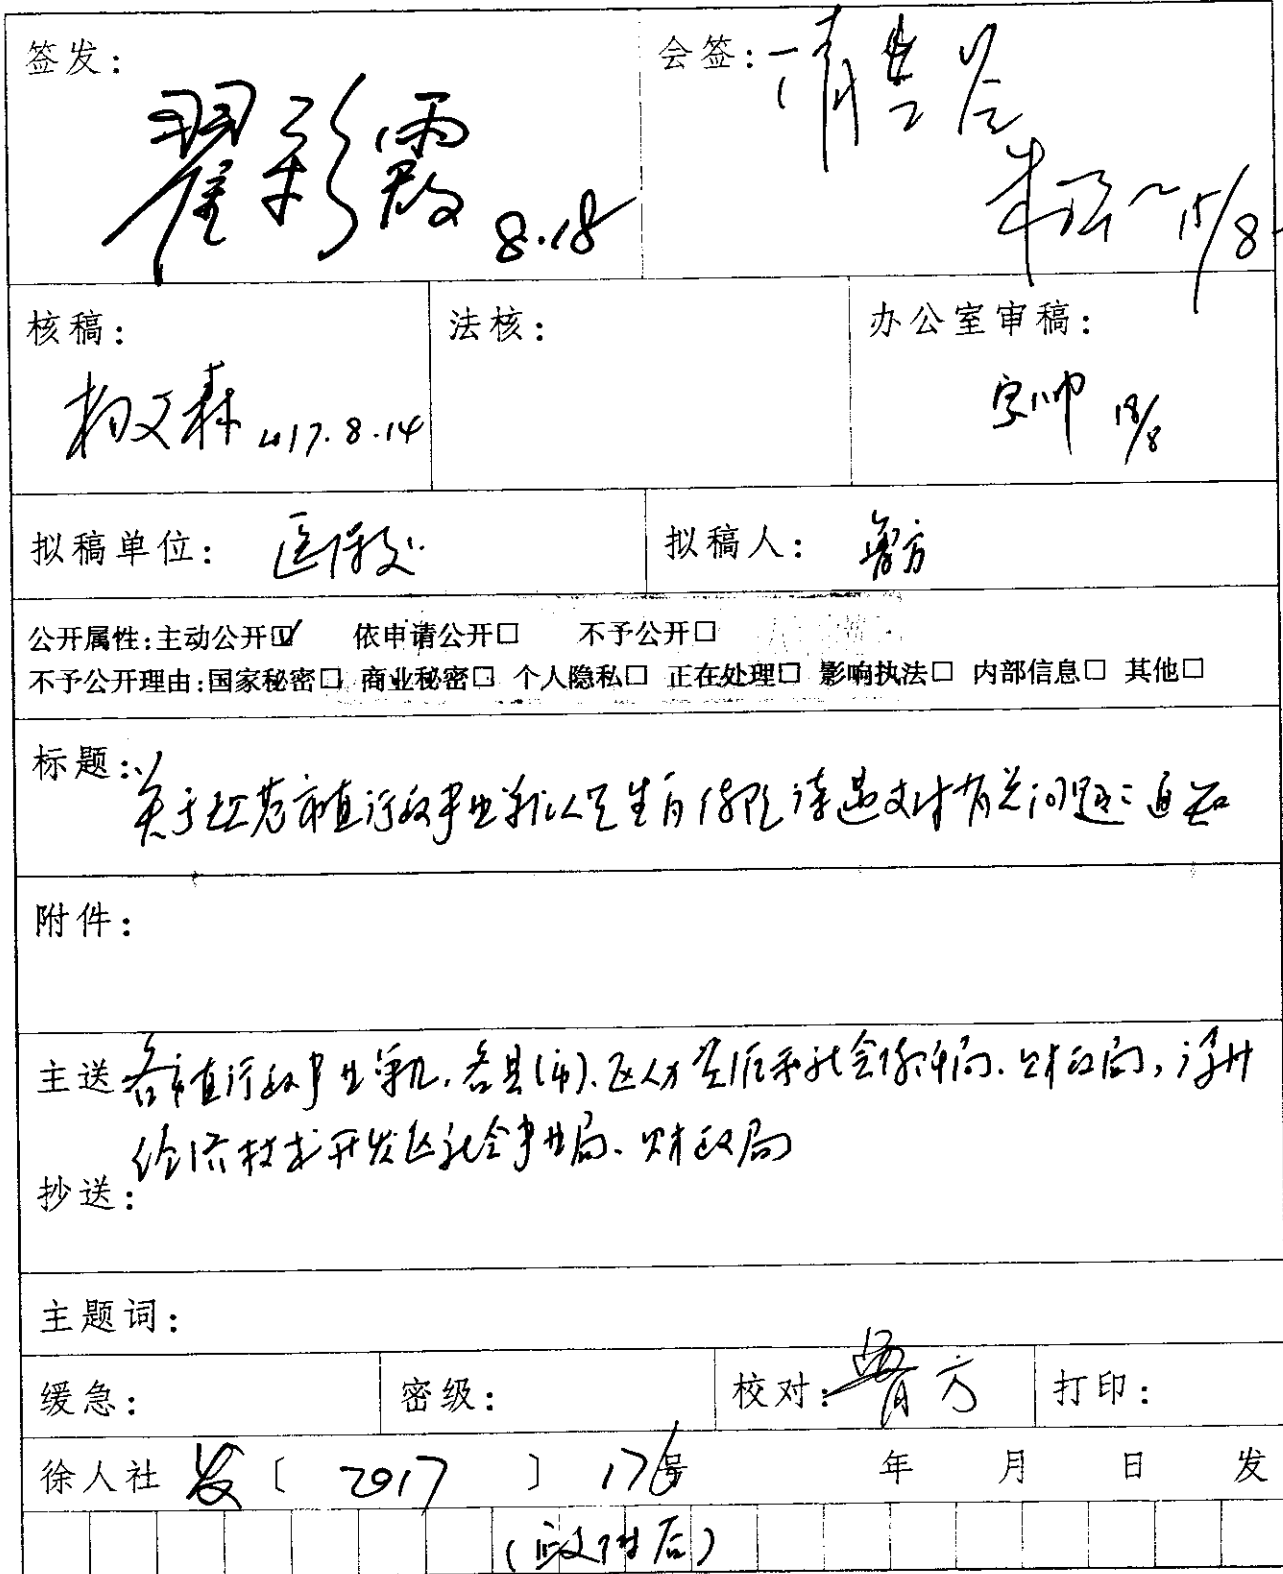 签发：
翟彩霞 8.18
会签：请
15/8
核稿：
2017.8.14
法核：
办公室审稿：
18/8
拟稿单位：医保处
拟稿人：
公开属性：主动公开☑ 依申请公开□ 不予公开□
不予公开理由：国家秘密□ 商业秘密□ 个人隐私□ 正在处理□ 影响执法□ 内部信息□ 其他□
标题：
关于 市直行政事业单位人员生育保险待遇支付有关问题的通知
附件：
主送 各市直行政事业单位、各县(市)、区人力资源和社会保障局、财政局，
经济技术开发区社会事业局、财政局
抄送：
主题词：
缓急：
密级：
校对：
打印：
徐人社 发〔 2017 〕 176号 年 月 日 发
(正文附后)